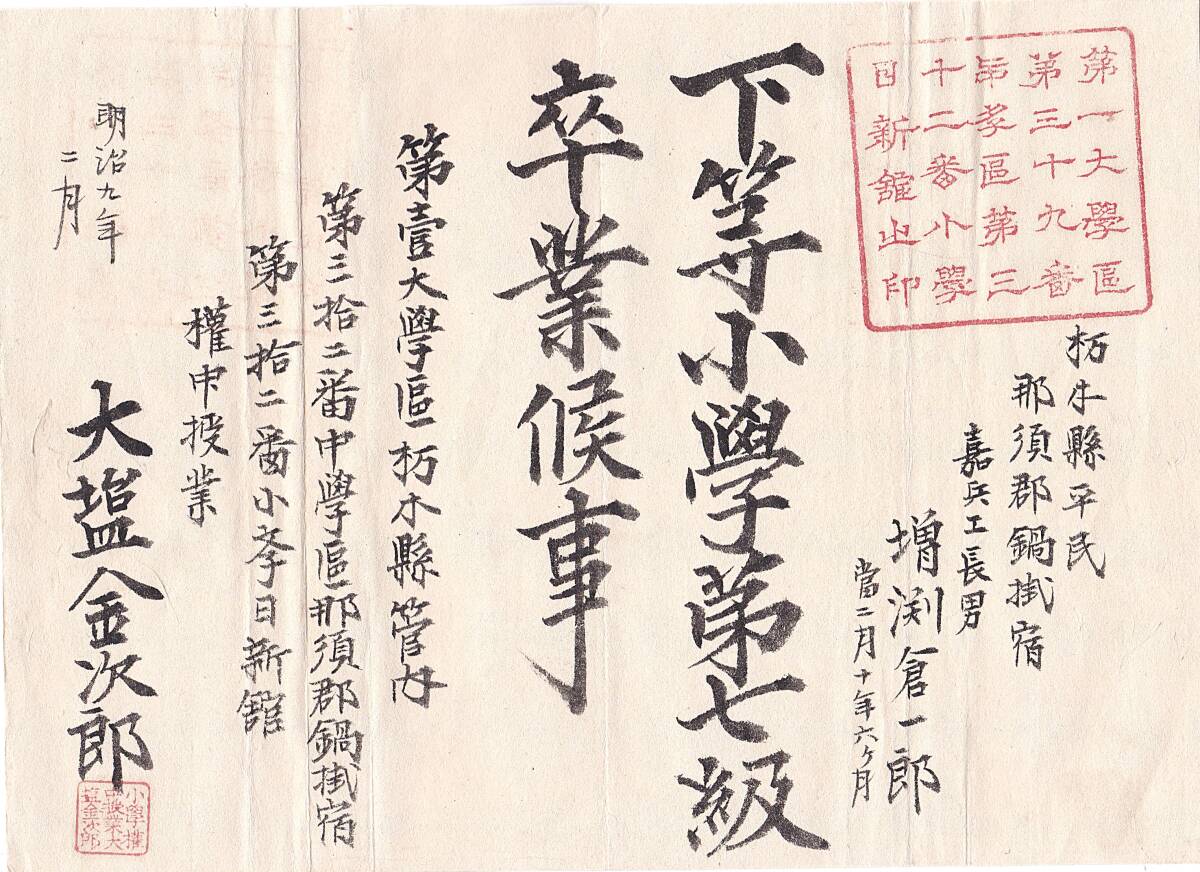 第一大學區
第三十九番
中斈區第三
十二番小學
日新舘之印
栃木縣平民
那須郡鍋掛宿
嘉兵工長男
増渕倉一郎
當二月十年六ヶ月
下等小學第七級
卒業候事
第壹大學區栃木縣管内
第三拾二番中學區那須郡鍋掛宿
第三拾二番小斈日新舘
權中授業
大塩金次郎
小學權
中授業大
塩金次郎
明治九年
二月